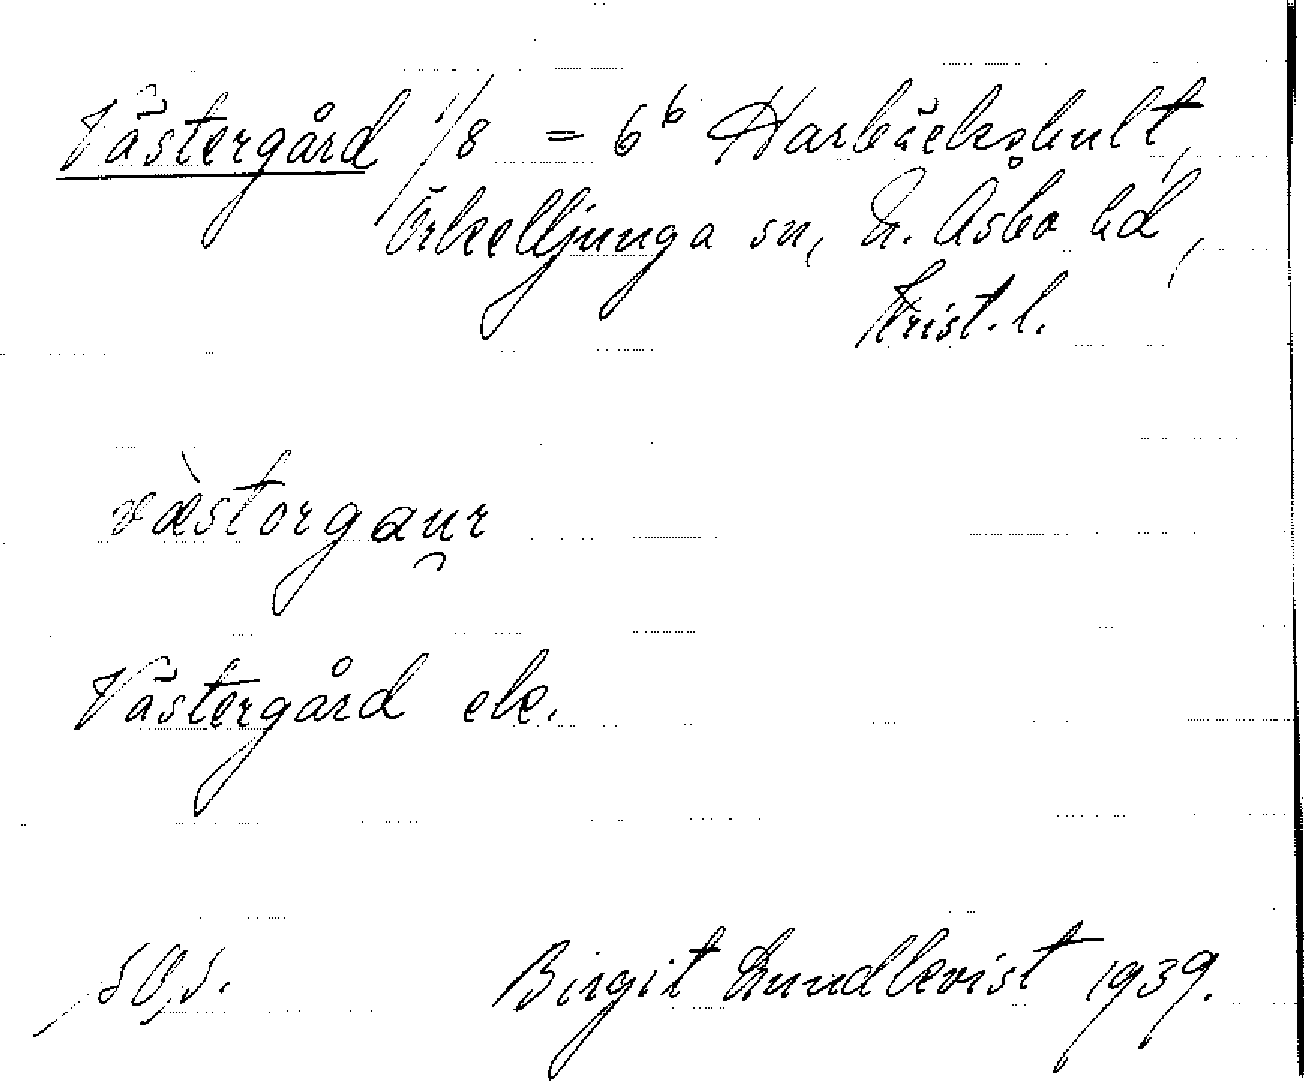 Västergård 1/8 = 6⁶ Harbäckshult,
Örkelljunga sn, N. Åsbo hd,
Krist. l.
væ̀storgau̯r
Västergård ek.
Birgit Lundkvist 1939.